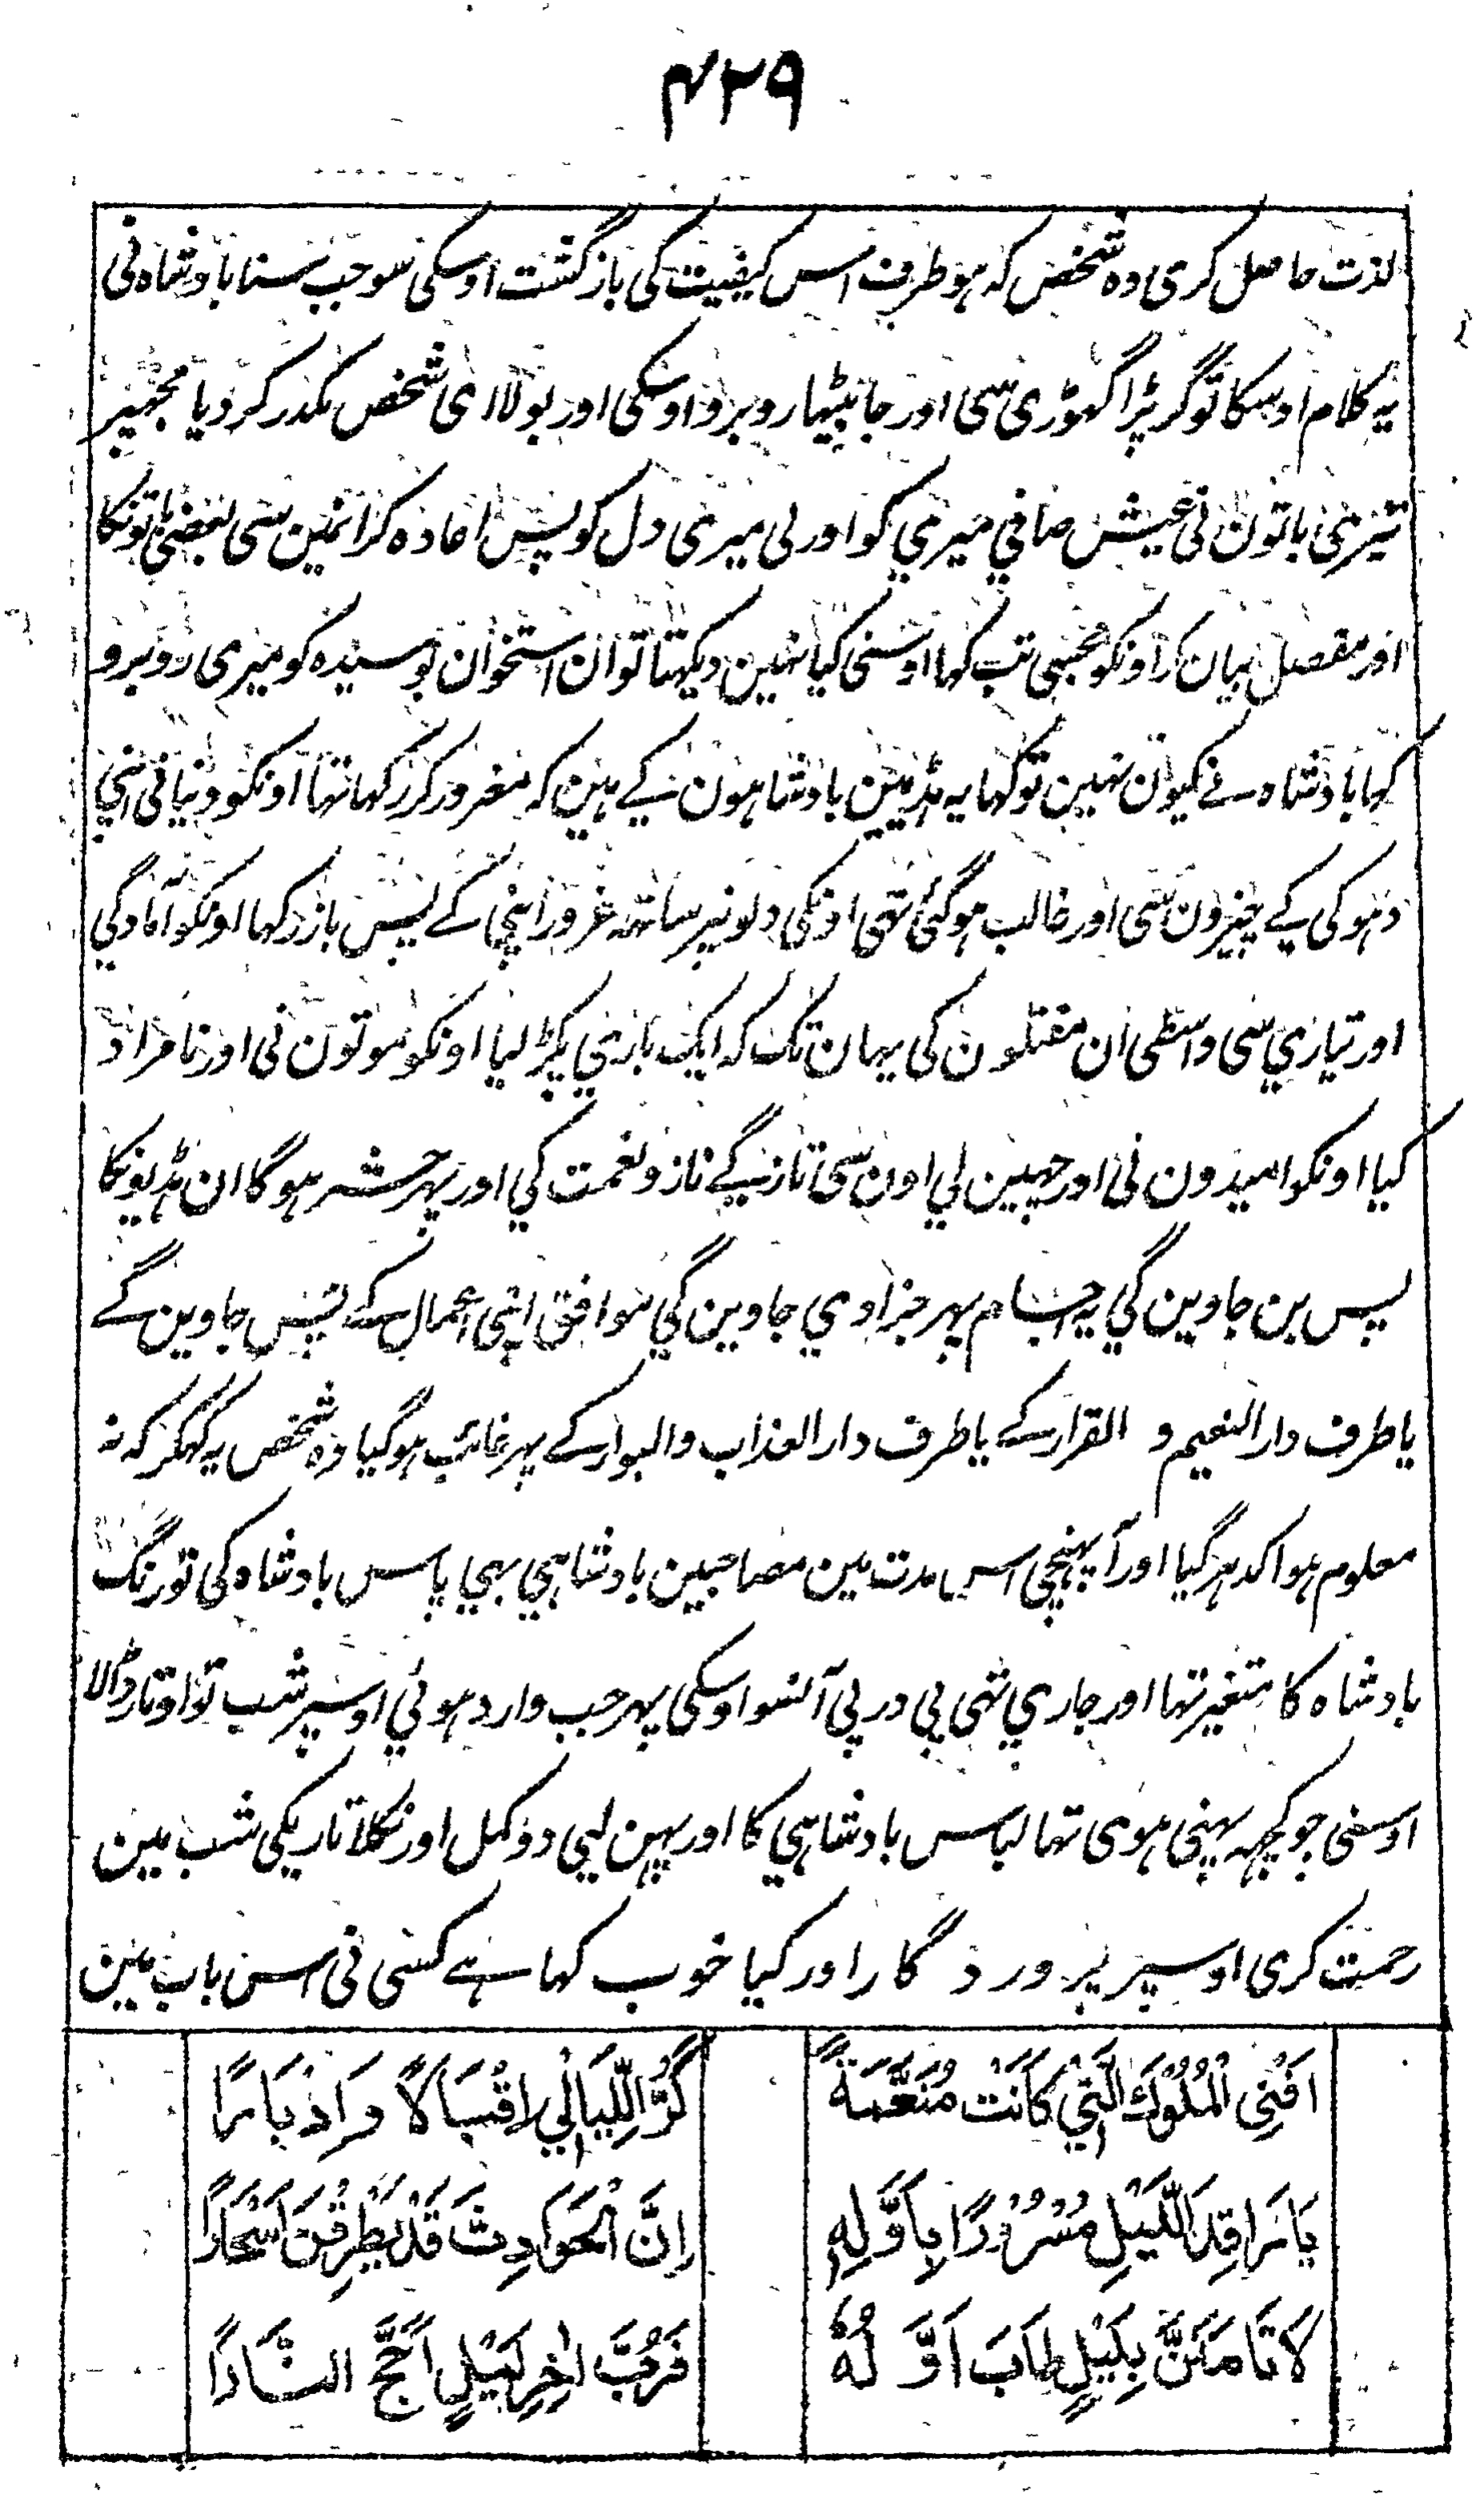 ۴۲۹
لذت حاصل کری وہ شخص کہ ہو طرف اس کیفیت کی بازگشت اوسکی سو جب سنا بادشاہ نی
یہ کلام اوسکا تو گر پڑا گھوڑی سی اور جا بیٹہا روبرو اوسکی اور بولا ای شخص مکدر کر دیا مجھپر
تیری باتون نی عیش صافي میري کو اور لی میری دل کو پس اعادہ کر انمین سی بعضی باتونکا
اور مفصل بیان کر اونکو مجھسی تب کہا اوسنی کیا نہین دیکہتا تو ان استخوان بوسیدہ کو میری روبرو
کہا بادشاہ نے کیون نہین تو کہا یہ ہڈیین بادشاہون کے ہین کہ مغرور کر رکہا تہا اونکو دنیا نی اپني
دہوکی کے چیزون سی اور غالب ہو گئی تہی اونکی دلونپر ساتہہ غرور اپنی کے پس باز رکہا اونکو آمادگي
اور تیاري سی واسطی ان مقتلون کی یہان تک کہ ایک بارگي پکڑ لیا اونکو موتون نی اور نامراد
کیا اونکو امیدون نی اور چہین لي اون سی تازگے ناز و نعمت کي اور پہر حشر ہو گا ان ہڈیونکا
پس بن جاوین گي یہ اجسام پہر جزا دي جاوین گي موافق اپنی اعمال کے پس جاوین گے
یا طرف دار النعیم و القرار کے یا طرف دار العذاب والبوار کے پہر غائب ہو گیا وہ شخص یہ کہکر کہ نہ
معلوم ہوا کدہر گیا اور آ پہنچی اس مدت مین مصاحبین بادشاہي بہي پاس بادشاہ کی تو رنگ
بادشاہ کا متغیر تہا اور جاري تہی پی در پی آنسو اوسکی پہر جب وارد ہوئي اوسپر شب تو اوتار ڈالا
اوسنی جو کچہہ پہنی ہوی تہا لباس بادشاہي کا اور پہن لیي دو کمل اور نکلا تاریکی شب مین
رحمت کری اوسپر پروردگار اور کیا خوب کہا ہے کسی نی اس باب مین
اَفْنَى الْمُلُوْكَ الَّتِيْ كَانَتْ مُنَعَّمَةً كَرُّ اللَّيَالِيْ اِقْبَالًا وَ اِدْبَارًا
يَا رَاقِدَ اللَّيْلِ مَسْرُوْرًا بِاَوَّلِهٖ اِنَّ الْحَوَادِثَ قَدْ يَطْرُقْنَ اَسْحَارًا
لَا تَاْمَنَنَّ بِلَيْلٍ طَابَ اَوَّلُهٗ فَرُبَّ اٰخِرِ لَيْلٍ اَجَّجَ النَّارَا